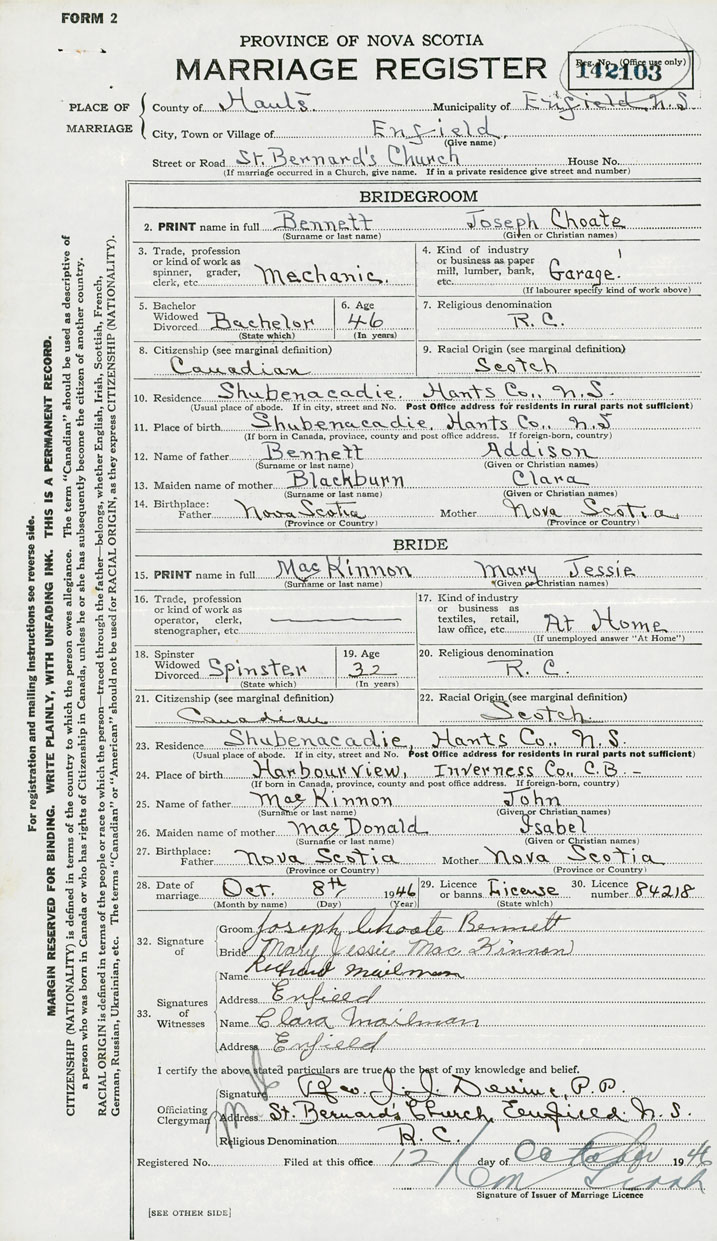 FORM 2
PROVINCE OF NOVA SCOTIA
MARRIAGE REGISTER
Reg. No. (Office use only)
142103
PLACE OF MARRIAGE
County of Hants. Municipality of Enfield N.S.
City, Town or Village of Enfield.
(Give name)
Street or Road St. Bernard's Church House No.
(If marriage occurred in a Church, give name. If in a private residence give street and number)
BRIDEGROOM
2. PRINT name in full Bennett Joseph Choate
(Surname or last name) (Given or Christian names)
3. Trade, profession or kind of work as spinner, grader, clerk, etc. Mechanic.
4. Kind of industry or business as paper mill, lumber, bank, etc. Garage.
(If labourer specify kind of work above)
5. Bachelor Widowed Divorced Bachelor
(State which)
6. Age 46
(In years)
7. Religious denomination R.C.
8. Citizenship (see marginal definition) Canadian
9. Racial Origin (see marginal definition) Scotch
10. Residence Shubenacadie, Hants Co., N.S.
(Usual place of abode. If in city, street and No. Post Office address for residents in rural parts not sufficient)
11. Place of birth Shubenacadie, Hants Co., N.S
(If born in Canada, province, county and post office address. If foreign-born, country)
12. Name of father Bennett Addison
(Surname or last name) (Given or Christian names)
13. Maiden name of mother Blackburn Clara
(Surname or last name) (Given or Christian names)
14. Birthplace: Father Nova Scotia Mother Nova Scotia
(Province or Country) (Province or Country)
BRIDE
15. PRINT name in full MacKinnon Mary Jessie
(Surname or last name) (Given or Christian names)
16. Trade, profession or kind of work as operator, clerk, stenographer, etc.
17. Kind of industry or business as textiles, retail, law office, etc. At Home
(If unemployed answer "At Home")
18. Spinster Widowed Divorced Spinster
(State which)
19. Age 32
(In years)
20. Religious denomination R.C.
21. Citizenship (see marginal definition) Canadian
22. Racial Origin (see marginal definition) Scotch.
23. Residence Shubenacadie, Hants Co., N.S.
(Usual place of abode. If in city, street and No. Post Office address for residents in rural parts not sufficient)
24. Place of birth Harbourview, Inverness Co., C.B. -
(If born in Canada, province, county and post office address. If foreign-born, country)
25. Name of father MacKinnon John
(Surname or last name) (Given or Christian names)
26. Maiden name of mother MacDonald Isabel
(Surname or last name) (Given or Christian names)
27. Birthplace: Father Nova Scotia Mother Nova Scotia
(Province or Country) (Province or Country)
28. Date of marriage Oct. 8th 1946
(Month by name) (Day) (Year)
29. Licence or banns License
(State which)
30. Licence number 84218
32. Signature of
Groom Joseph Choate Bennett
Bride Mary Jessie MacKinnon
33. Signatures of Witnesses
Name Richard Mailman
Address Enfield
Name Clara Mailman
Address Enfield
I certify the above stated particulars are true to the best of my knowledge and belief.
Officiating Clergyman
Signature Rev. J.J. Devine, P.P.
Address St. Bernard's Church, Enfield. N.S.
Religious Denomination R.C.
Registered No. Filed at this office 12 day of October 1946
Signature of Issuer of Marriage Licence
[SEE OTHER SIDE]
For registration and mailing instructions see reverse side.
MARGIN RESERVED FOR BINDING. WRITE PLAINLY, WITH UNFADING INK. THIS IS A PERMANENT RECORD.
CITIZENSHIP (NATIONALITY) is defined in terms of the country to which the person owes allegiance. The term "Canadian" should be used as descriptive of
a person who was born in Canada or who has rights of Citizenship in Canada, unless he or she has subsequently become the citizen of another country.
RACIAL ORIGIN is defined in terms of the people or race to which the person—traced through the father—belongs, whether English, Irish, Scottish, French,
German, Russian, Ukrainian, etc. The terms "Canadian" or "American" should not be used for RACIAL ORIGIN, as they express CITIZENSHIP (NATIONALITY).